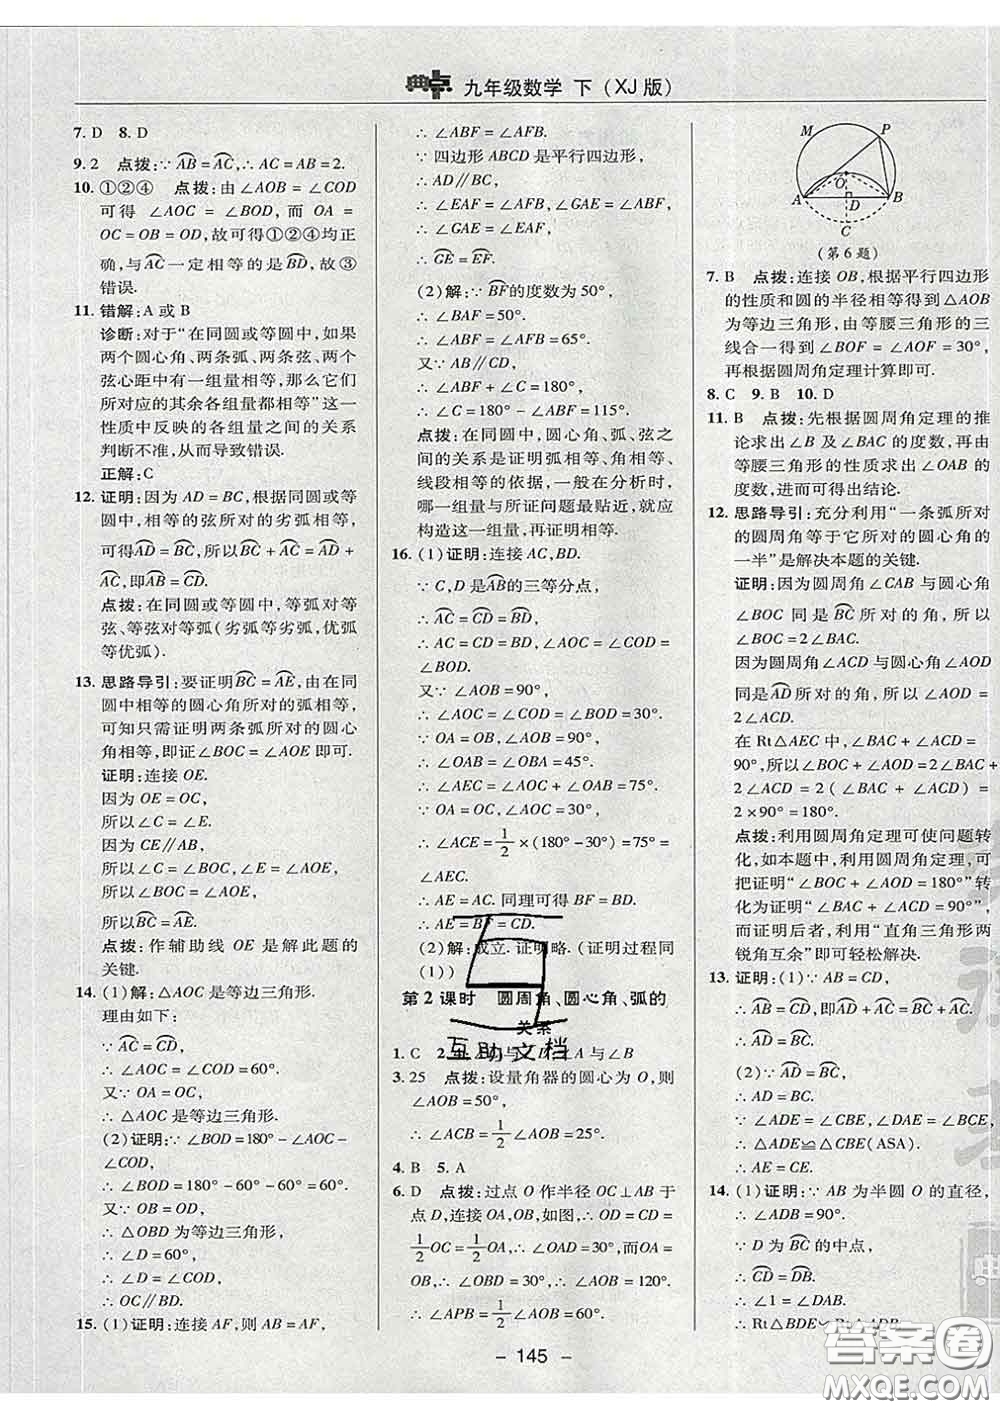 典中点 九年级数学 下(XJ版)
7. D 8. D
9. 2 点拨:∵AB=AC,∴AC=AB=2.
10. ①②④ 点拨:由∠AOB=∠COD
可得 ∠AOC=∠BOD,而 OA=
OC=OB=OD,故可得①②④均正
确,与AC一定相等的是BD,故③
错误.
11. 错解:A 或 B
诊断:对于“在同圆或等圆中,如果
两个圆心角、两条弧、两条弦、两个
弦心距中有一组量相等,那么它们
所对应的其余各组量都相等”这一
性质中反映的各组量之间的关系
判断不准,从而导致错误.
正解:C
12. 证明:因为 AD=BC,根据同圆或等
圆中,相等的弦所对的劣弧相等,
可得AD=BC,所以BC+AC=AD+
AC,即AB=CD.
点拨:在同圆或等圆中,等弧对等
弦、等弦对等弧(劣弧等劣弧,优弧
等优弧).
13. 思路导引:要证明BC=AE,由在同
圆中相等的圆心角所对的弧相等,
可知只需证明两条弧所对的圆心
角相等,即证∠BOC=∠AOE 即可.
证明:连接 OE.
因为 OE=OC,
所以∠C=∠E.
因为 CE∥AB,
所以∠C=∠BOC,∠E=∠AOE,
所以∠BOC=∠AOE,
所以BC=AE.
点拨:作辅助线 OE 是解此题的
关键.
14. (1)解:△AOC是等边三角形.
理由如下:
∵AC=CD,
∴∠AOC=∠COD=60°.
又∵OA=OC,
∴△AOC 是等边三角形.
(2)证明:∵∠BOD=180°-∠AOC-
∠COD,
∴∠BOD=180°-60°-60°=60°.
又∵OB=OD,
∴△OBD 为等边三角形,
∴∠D=60°,
∴∠D=∠COD,
∴OC∥BD.
15. (1)证明:连接 AF,则 AB=AF,
∴∠ABF=∠AFB.
∵四边形 ABCD 是平行四边形,
∴AD∥BC,
∴∠EAF=∠AFB,∠GAE=∠ABF,
∴∠GAE=∠EAF,
∴GE=EF.
(2)解:∵BF的度数为 50°,
∴∠BAF=50°.
∴∠ABF=∠AFB=65°.
又∵AB∥CD,
∴∠ABF+∠C=180°,
∴∠C=180°-∠ABF=115°.
点拨:在同圆中,圆心角、弧、弦之
间的关系是证明弧相等、角相等、
线段相等的依据,一般在分析时,
哪一组量与所证问题最贴近,就应
构造这一组量,再证明相等.
16. (1)证明:连接 AC,BD.
∵C,D 是AB的三等分点,
∴AC=CD=BD,
∴AC=CD=BD,∠AOC=∠COD=
∠BOD.
又∵∠AOB=90°,
∴∠AOC=∠COD=∠BOD=30°.
∵OA=OB,∠AOB=90°,
∴∠OAB=∠OBA=45°.
∴∠AEC=∠AOC+∠OAB=75°.
∵OA=OC,∠AOC=30°,
∴∠ACE=1/2×(180°-30°)=75°=
∠AEC.
∴AE=AC.同理可得 BF=BD.
∴AE=BF=CD.
(2)解:成立.证明略.(证明过程同
(1))
第2课时 圆周角、圆心角、弧的
关系
互助文档
1. C 2. ∠C与∠D;∠A与∠B
3. 25 点拨:设量角器的圆心为 O,则
∠AOB=50°,
∴∠ACB=1/2∠AOB=25°.
4. B 5. A
6. D 点拨:过点 O 作半径 OC⊥AB 于
点 D,连接 OA,OB,如图,∴OD=CD=
1/2OC=1/2OA,∴∠OAD=30°,而OA=
OB,∴∠OBD=30°,∴∠AOB=120°.
∴∠APB=1/2∠AOB=60°.
M P O A D B C
(第6题)
7. B 点拨:连接 OB,根据平行四边形
的性质和圆的半径相等得到△AOB
为等边三角形,由等腰三角形的三
线合一得到∠BOF=∠AOF=30°,
再根据圆周角定理计算即可.
8. C 9. B 10. D
11. B 点拨:先根据圆周角定理的推
论求出∠B 及∠BAC 的度数,再由
等腰三角形的性质求出∠OAB的
度数,进而可得出结论.
12. 思路导引:充分利用“一条弧所对
的圆周角等于它所对的圆心角的
一半”是解决本题的关键.
证明:因为圆周角∠CAB 与圆心角
∠BOC 同是BC所对的角,所以
∠BOC=2∠BAC.
因为圆周角∠ACD与圆心角∠AOD
同是AD所对的角,所以∠AOD=
2∠ACD.
在 Rt△AEC 中,∠BAC+∠ACD=
90°,所以∠BOC+∠AOD=2∠BAC+
2∠ACD=2(∠BAC+∠ACD)=
2×90°=180°.
点拨:利用圆周角定理可使问题转
化,如本题中,利用圆周角定理,可
把证明“∠BOC+∠AOD=180°”转
化为证明“∠BAC+∠ACD=90°”,
而证明后者,利用“直角三角形两
锐角互余”可轻松解决.
13. 证明:(1)∵AB=CD,
∴AB=CD,即AD+AC=BC+AC,
∴AD=BC.
(2)∵AD=BC,
∴AD=BC.
∵∠ADE=∠CBE,∠DAE=∠BCE,
∴△ADE≌△CBE(ASA).
∴AE=CE.
14. (1)证明:∵AB 为半圆 O 的直径,
∴∠ADB=90°.
∵D 为BC的中点,
∴CD=DB.
∴∠1=∠DAB.
∴Rt△BDE∽Rt△ADB,
- 145 -
答案圈
MXQE.COM